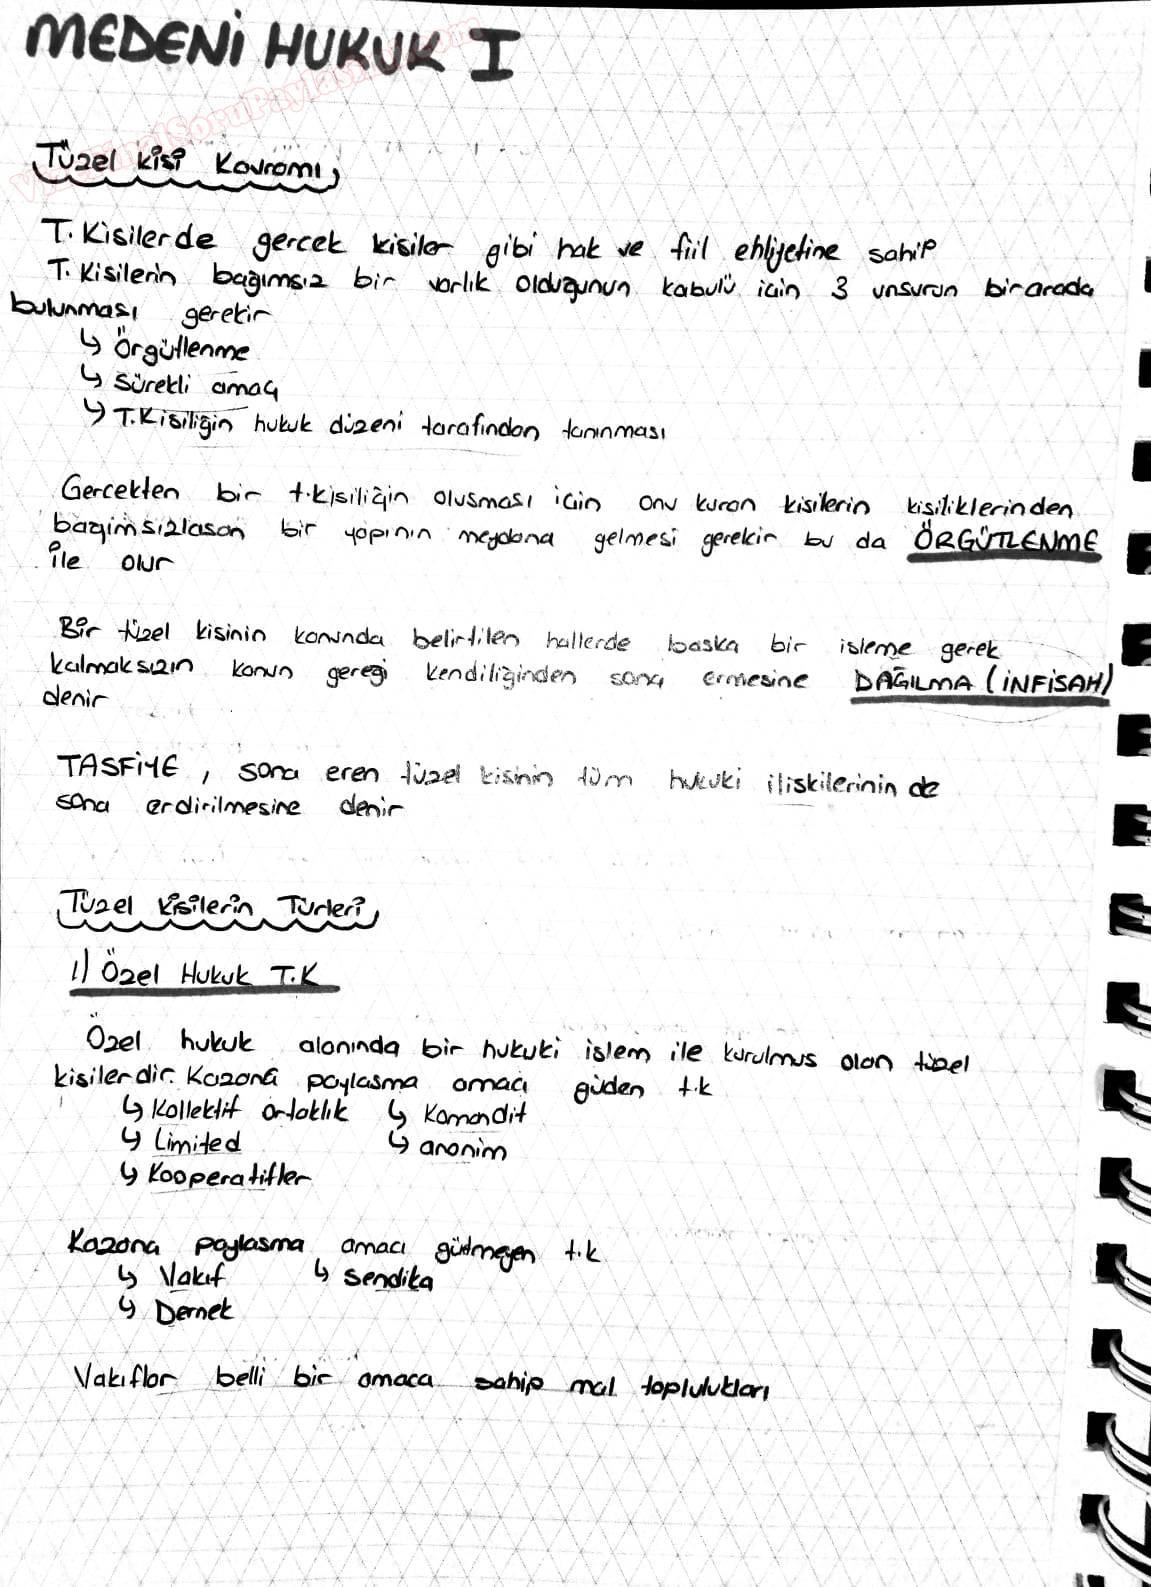 MEDENİ HUKUK I
Tüzel kişi Kavramı
T. Kişilerde gerçek kişiler gibi hak ve fiil ehliyetine sahip
T. Kişilerin bağımsız bir varlık olduğunun kabulü için 3 unsurun bir arada
bulunması gerekir
↳ Örgütlenme
↳ Sürekli amaç
↳ T.Kişiliğin hukuk düzeni tarafından tanınması
Gerçekten bir t.kişiliğin oluşması için onu kuran kişilerin kişiliklerinden
bağımsızlaşan bir yapının meydana gelmesi gerekir bu da ÖRGÜTLENME
ile olur
Bir tüzel kişinin kanunda belirtilen hallerde başka bir işleme gerek
kalmaksızın kanun gereği kendiliğinden sona ermesine DAĞILMA (İNFİSAH)
denir
TASFİYE, sona eren tüzel kişinin tüm hukuki ilişkilerinin de
sona erdirilmesine denir
Tüzel Kişilerin Türleri
1) Özel Hukuk T.K
Özel hukuk alanında bir hukuki işlem ile kurulmuş olan tüzel
kişilerdir. Kazanç paylaşma amacı güden t.k
↳ Kollektif ortaklık ↳ Komandit
↳ Limited ↳ anonim
↳ Kooperatifler
Kazanç paylaşma amacı gütmeyen t.k
↳ Vakıf ↳ Sendika
↳ Dernek
Vakıflar belli bir amaca sahip mal toplulukları